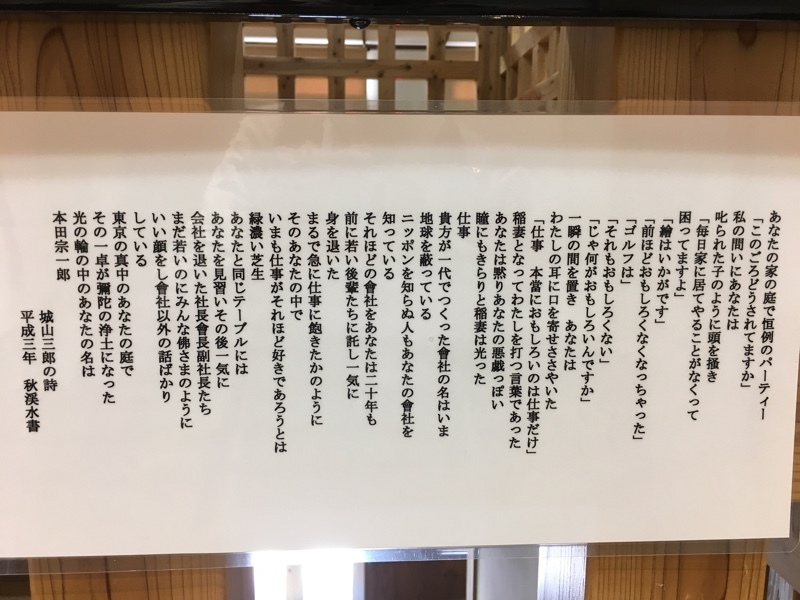 あなたの家の庭で恒例のパーティー
「このごろどうされてますか」
私の問いにあなたは
叱られた子のように頭を掻き
「毎日家に居てやることがなくって
困ってますよ」
「繪はいかがです」
「前ほどおもしろくなくなっちゃった」
「ゴルフは」
「それもおもしろくない」
「じゃ何がおもしろいんですか」
一瞬の間を置き　あなたは
わたしの耳に口を寄せささやいた
「仕事　本当におもしろいのは仕事だけ」
稲妻となってわたしを打つ言葉であった
あなたは黙りあなたの悪戯っぽい
瞳にもきらりと稲妻は光った
仕事
貴方が一代でつくった會社の名はいま
地球を蔽っている
ニッポンを知らぬ人もあなたの會社を
知っている
それほどの會社をあなたは二十年も
前に若い後輩たちに託し一気に
身を退いた
まるで急に仕事に飽きたかのように
そのあなたの中で
いまも仕事がそれほど好きであろうとは
緑濃い芝生
あなたと同じテーブルには
あなたを見習いその後一気に
会社を退いた社長會長副社長たち
まだ若いのにみんな佛さまのように
いい顔をし會社以外の話ばかり
している
東京の真中のあなたの庭で
その一卓が彌陀の浄土になった
光の輪の中のあなたの名は
本田宗一郎
城山三郎の詩
平成三年　秋渓水書